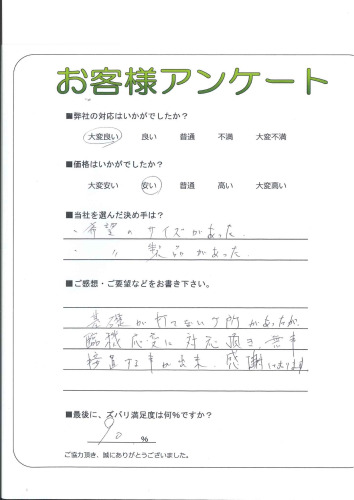 お客様アンケート
■弊社の対応はいかがでしたか?
大変良い 良い 普通 不満 大変不満
■価格はいかがでしたか?
大変安い 安い 普通 高い 大変高い
■当社を選んだ決め手は?
・希望のサイズがあった
・ 〃 製品があった
■ご感想・ご要望などをお書き下さい。
基礎が打てないヶ所があったが
臨機応変に対応頂き、無事
接置する事が出来、感謝しております
■最後に、ズバリ満足度は何%ですか?
90 %
ご協力頂き、誠にありがとうございました。